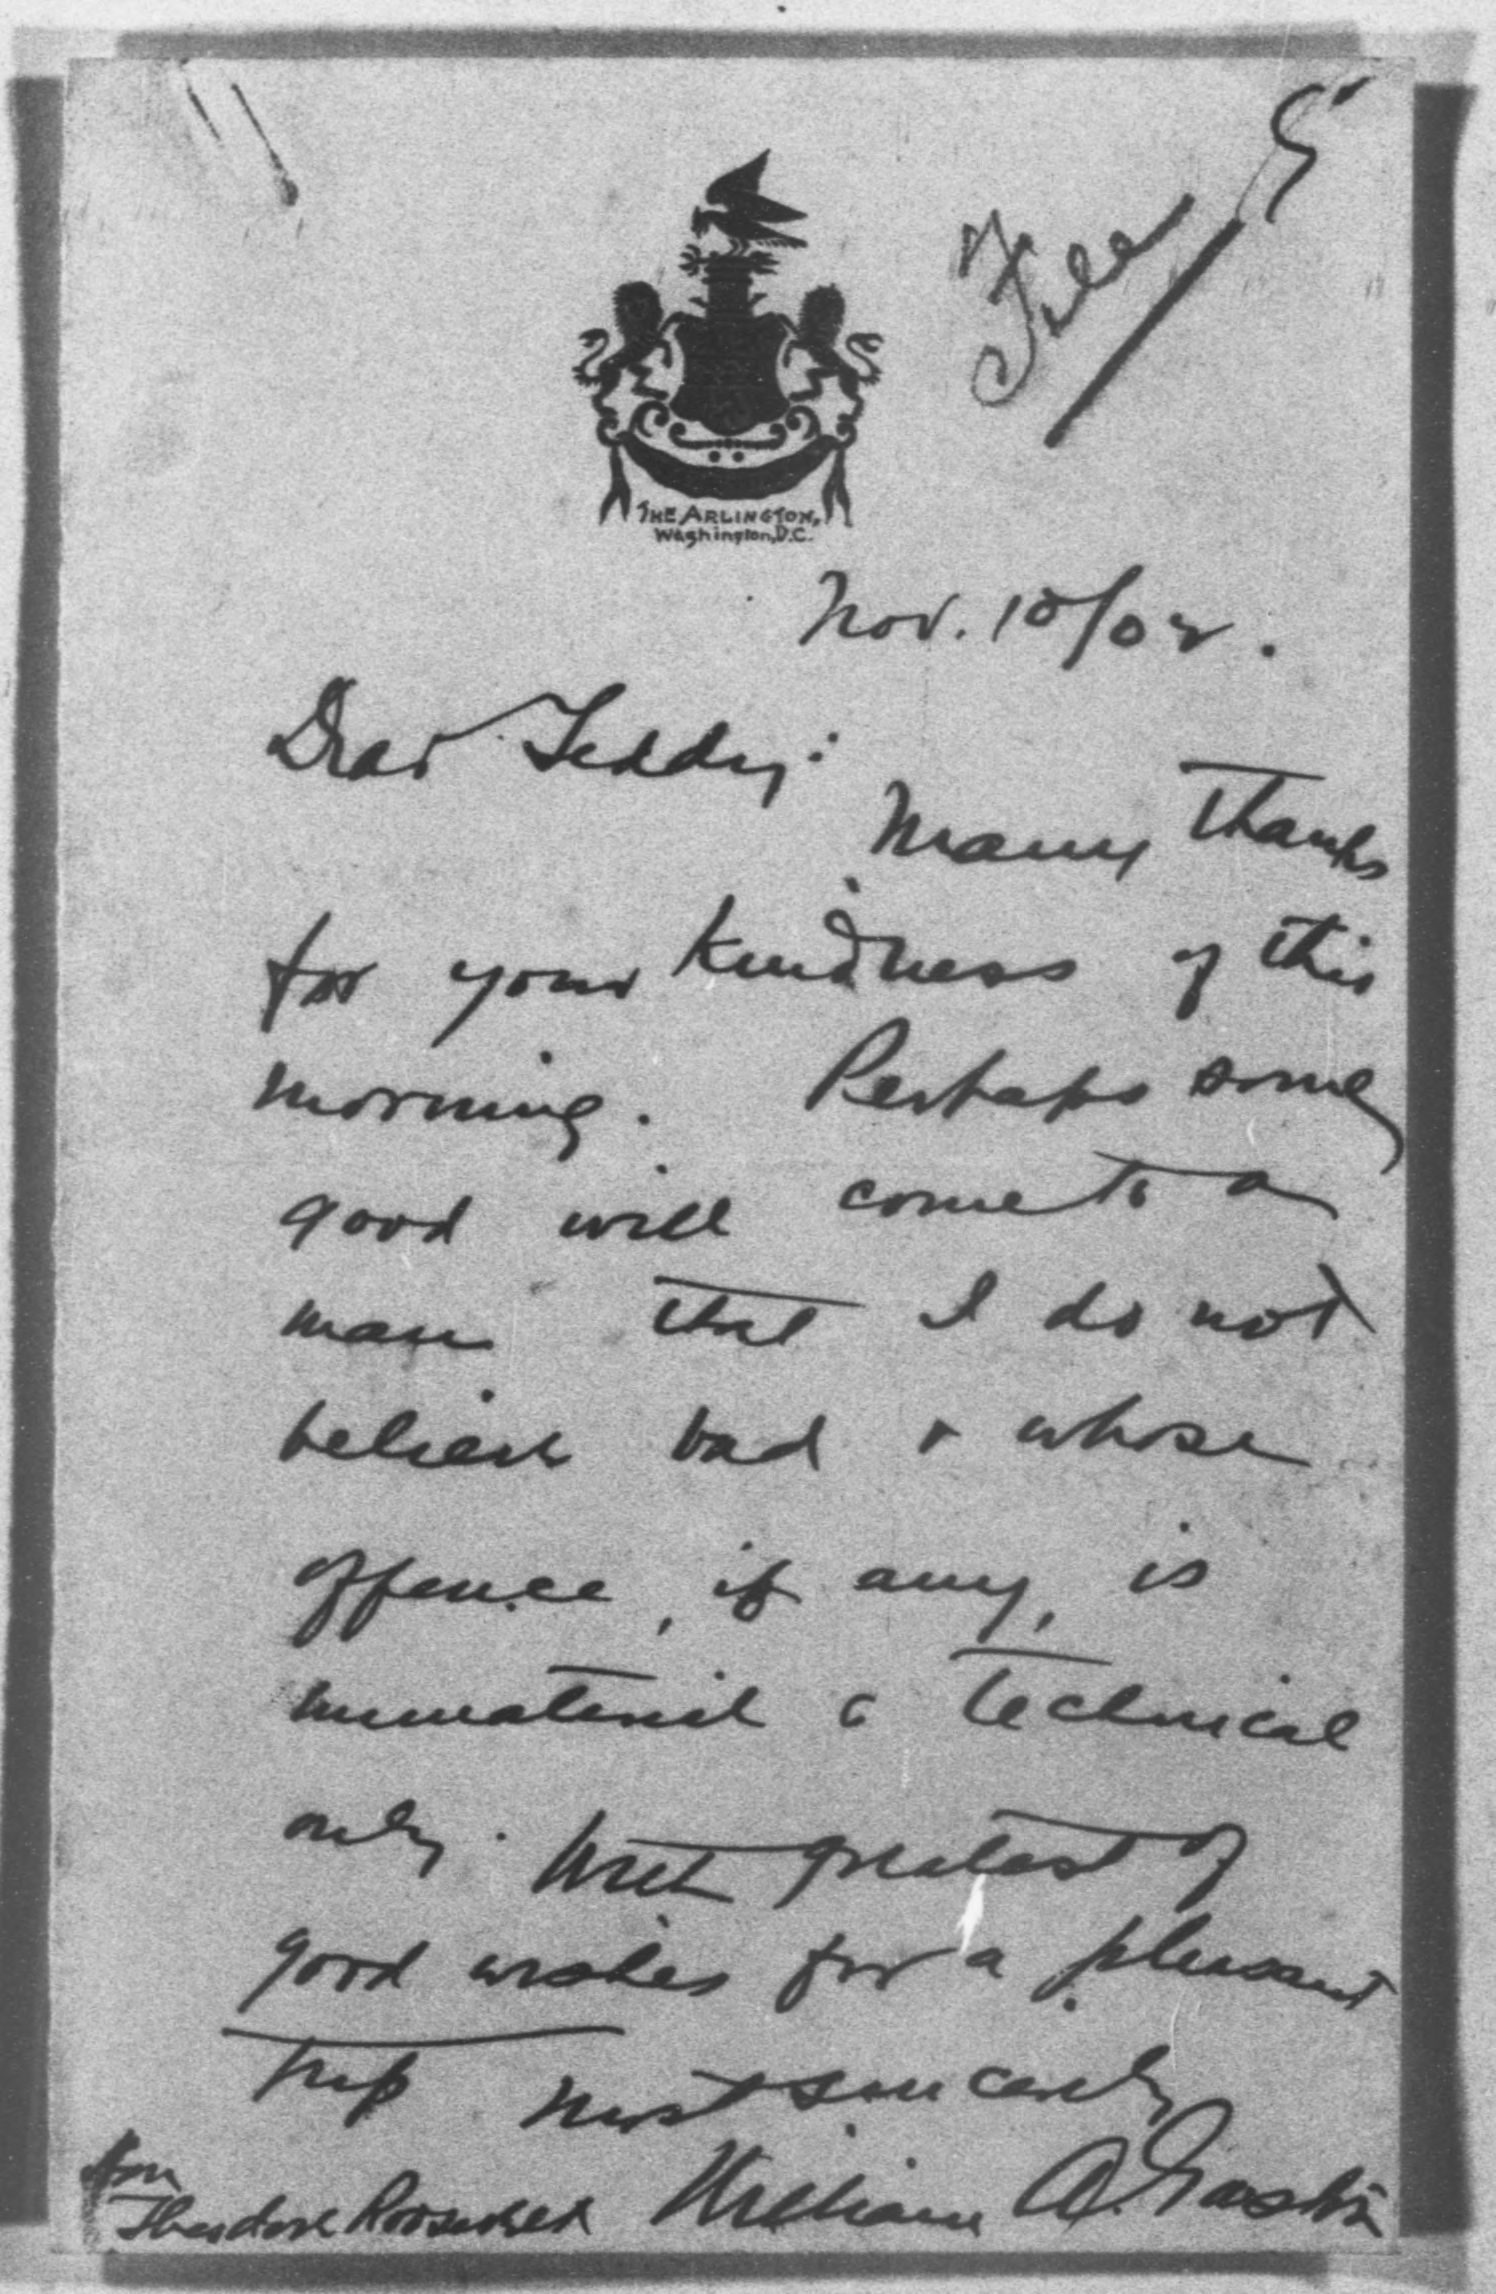 File
THE ARLINGTON,
Washington, D.C.
Nov. 10/02.
Dear Teddy:
Many thanks
for your kindness of this
morning. Perhaps some
good will come to a
man that I do not
believe bad & whose
offence, if any, is
immaterial & technical
only. With greatest of
good wishes for a pleasant
trip most sincerely
William A.
Hon
Theodore Roosevelt